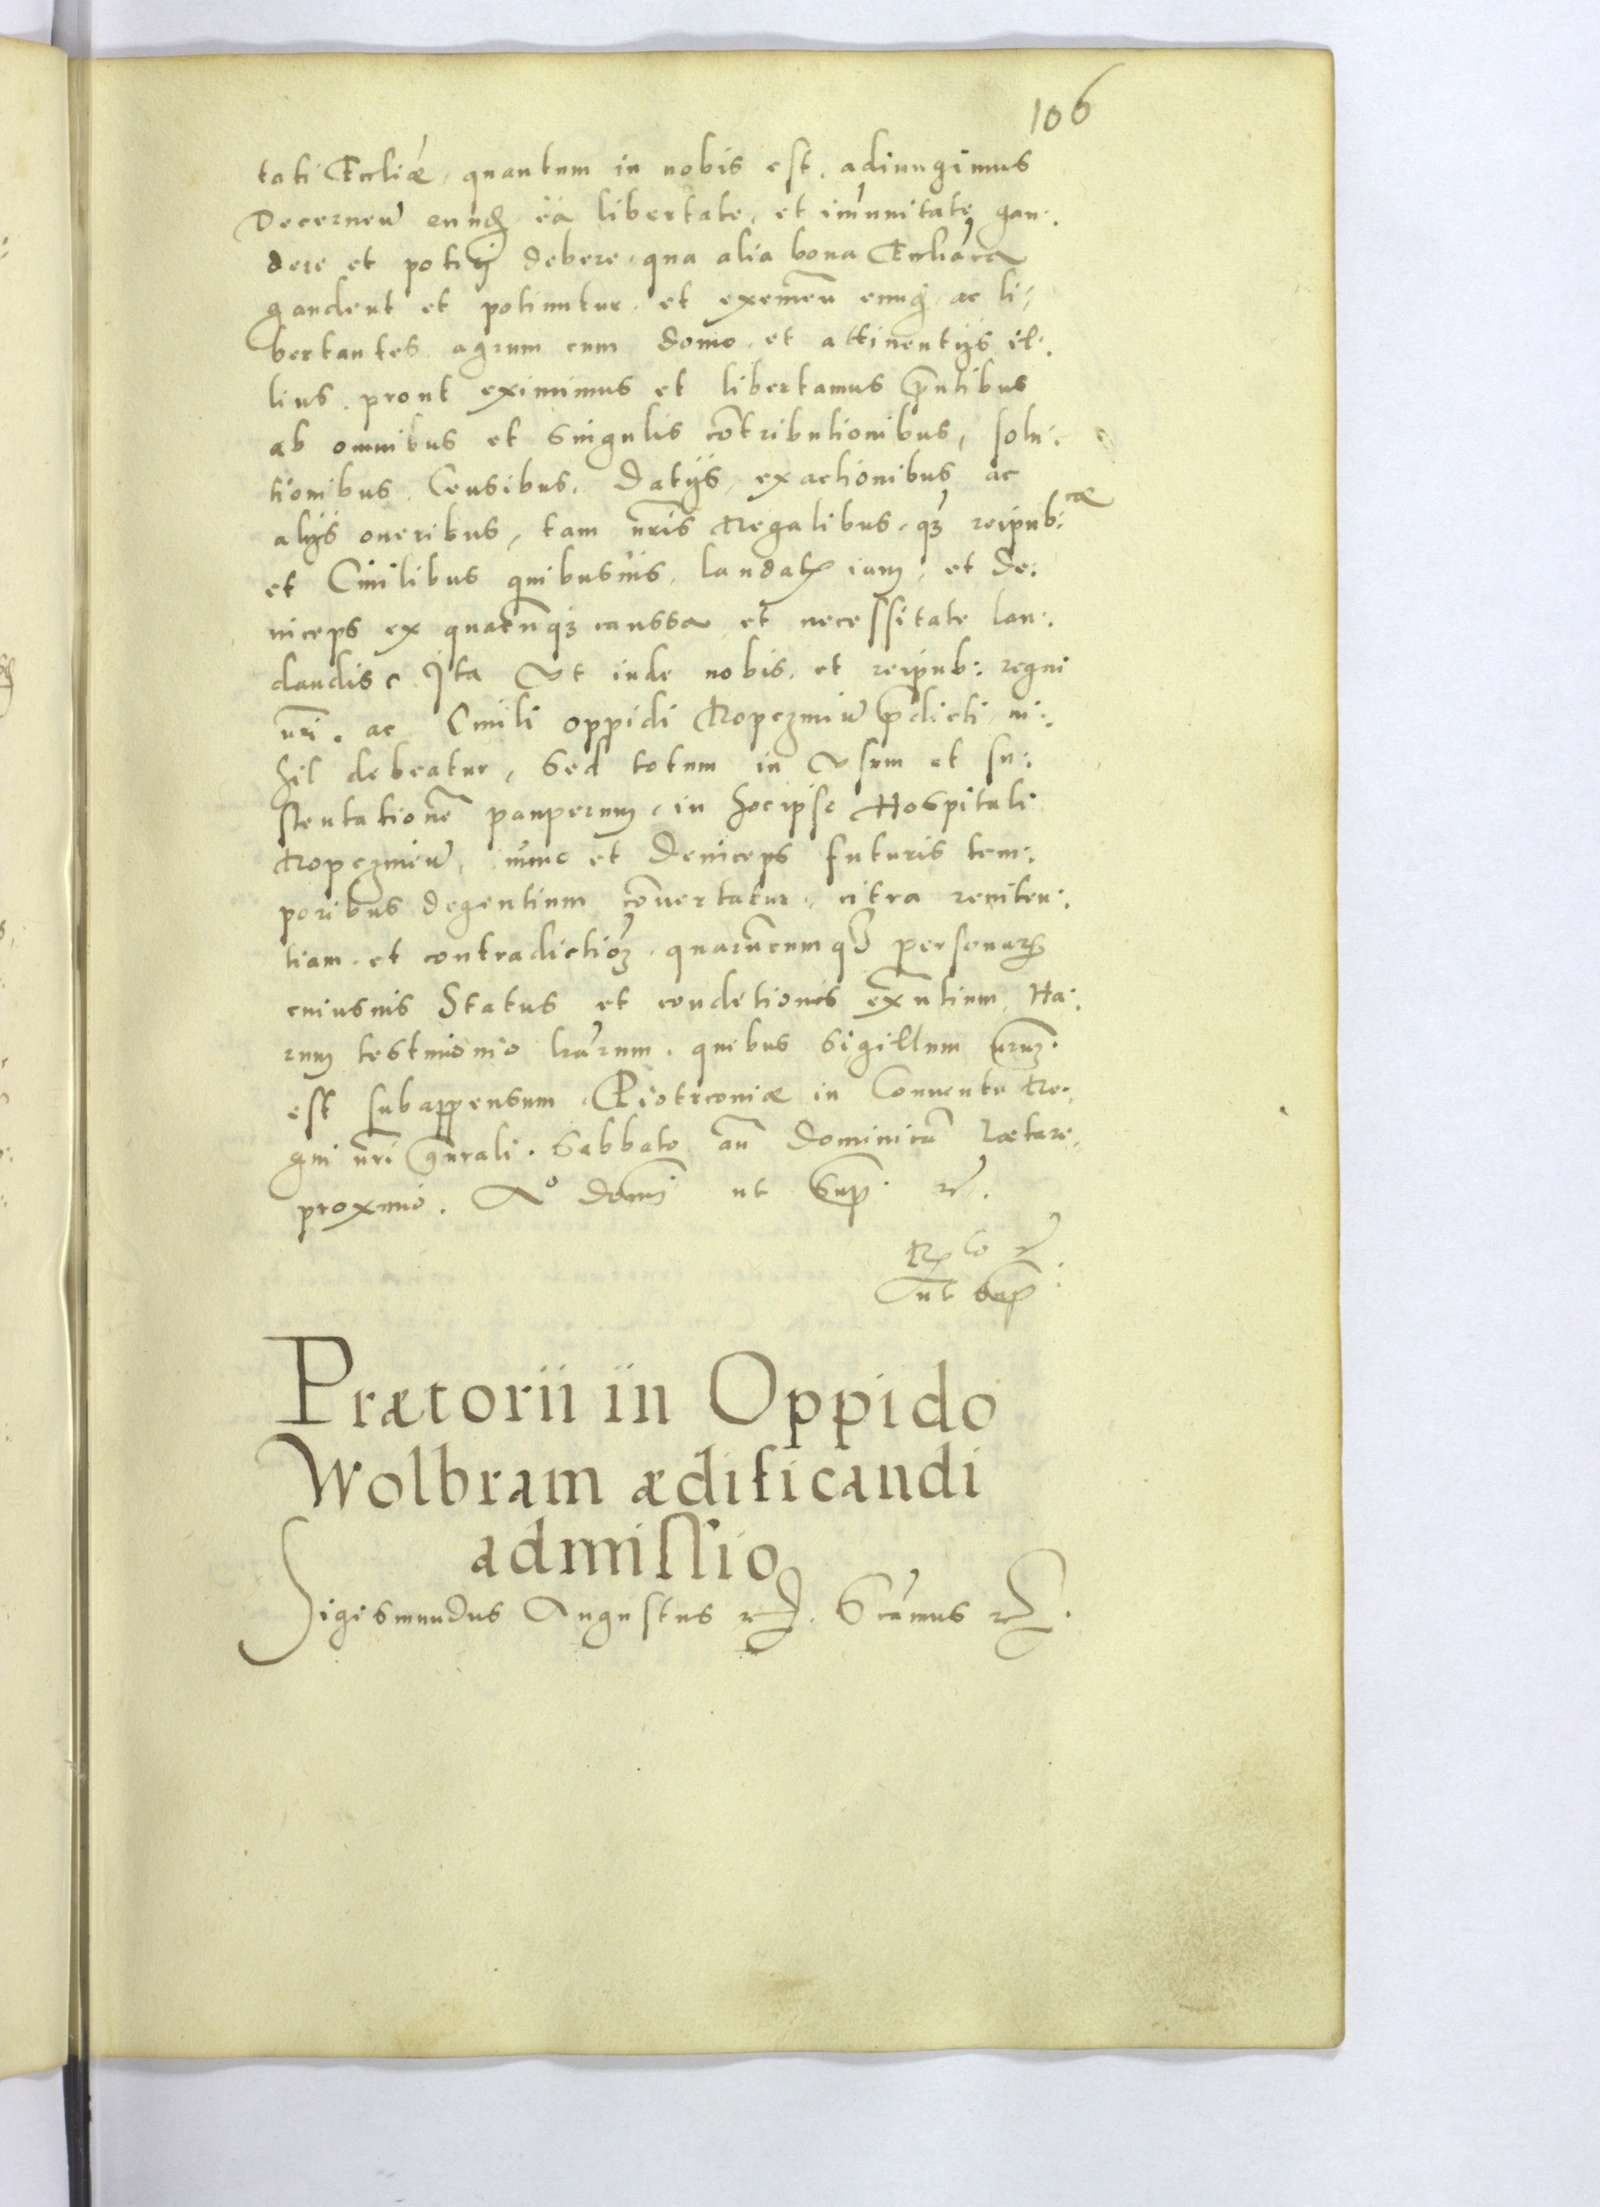 106
tati Eccliæ, quantum in nobis est, adiungimus
Decernen̄ eund̄. ea libertate, et im̄unitate, gau:
dere et potirj debere, qua alia bona Eccliāca
gaudent et potiuntur, et eximen̄ eund̄. ac li:
bertantes agrum cum domo et attinentijs il:
lius. prout eximimus et libertamus p̄ntibus
ab omnibus et singulis cōtributionibus, solu:
tionibus, Censibus, Datijs, exactionibus ac
alijs oneribus, tam nr̄is Regalibus, qȝ reipub:cæ
et Ciuilibus quibusuis, laudatꝭ iam, et de:
inceps ex quacūqȝ caussa et necessitate lau:
dandis, Ita Vt inde nobis, et reipub: regni
nr̄i, ac Ciuili oppidi Ropczyciēn p̄dicti ni:
hil debeatur, Sed totum in Vsum et su:
stentationē pauperum, in hocipso Hospitali
nunc et deinceps futuris tem:
poribus degentium cōuertatur, citra reniten:
tiam et contradictioȝ, quarūcumqȝ personarꝫ
cuiusuis Status et conditionis ex̄ntium, Ha:
rum testimonio lrārum, quibus Sigillum nr̄um
est subappensum. Piotrcouiæ in Conuentu Re:
gni nr̄i gn̄rali. Sabbato an̄ Dominicā Lætare,
proximo. Aº Domī ut Sup̄. etc̄.
Rlo etc̄
ut sup̄:
Prætorii in Oppido
Wolbram ædificandi
admissio
Sigismundus Augustus etc̄. Sc̄amus etc̄.